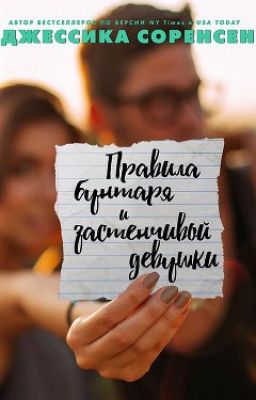 АВТОР БЕСТСЕЛЛЕРОВ ПО ВЕРСИИ NY Times и USA TODAY
ДЖЕССИКА СОРЕНСЕН
Правила
бунтаря
и
застенчивой
девушки